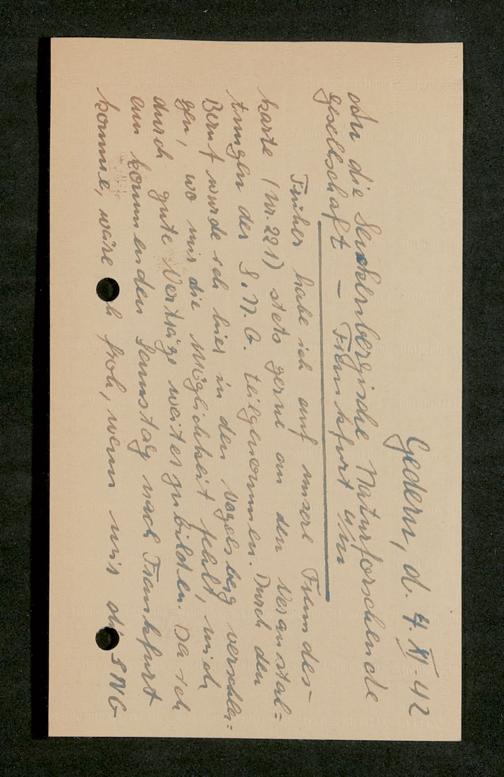 Gedern, d. 4. XI. 42
An die Senckenbergische Naturforschende
Gesellschaft – Frankfurt a/M
Früher habe ich auf unsere Freundes-
karte (Nr. 221) stets gerne an den Veranstal-
tungen der S.N.G. teilgenommen. Durch den
Beruf wurde ich hier in den Vogelsberg verschla-
gen, wo mir die Möglichkeit fehlt, mich
durch gute Vorträge weiterzubilden. Da ich
am kommenden Samstag nach Frankfurt
komme, wäre ich froh, wenn mir die SNG